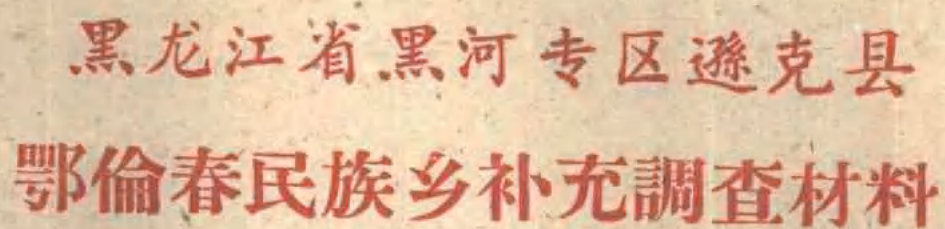 黑龙江省黑河专区遜克县
鄂倫春民族乡补充調查材料